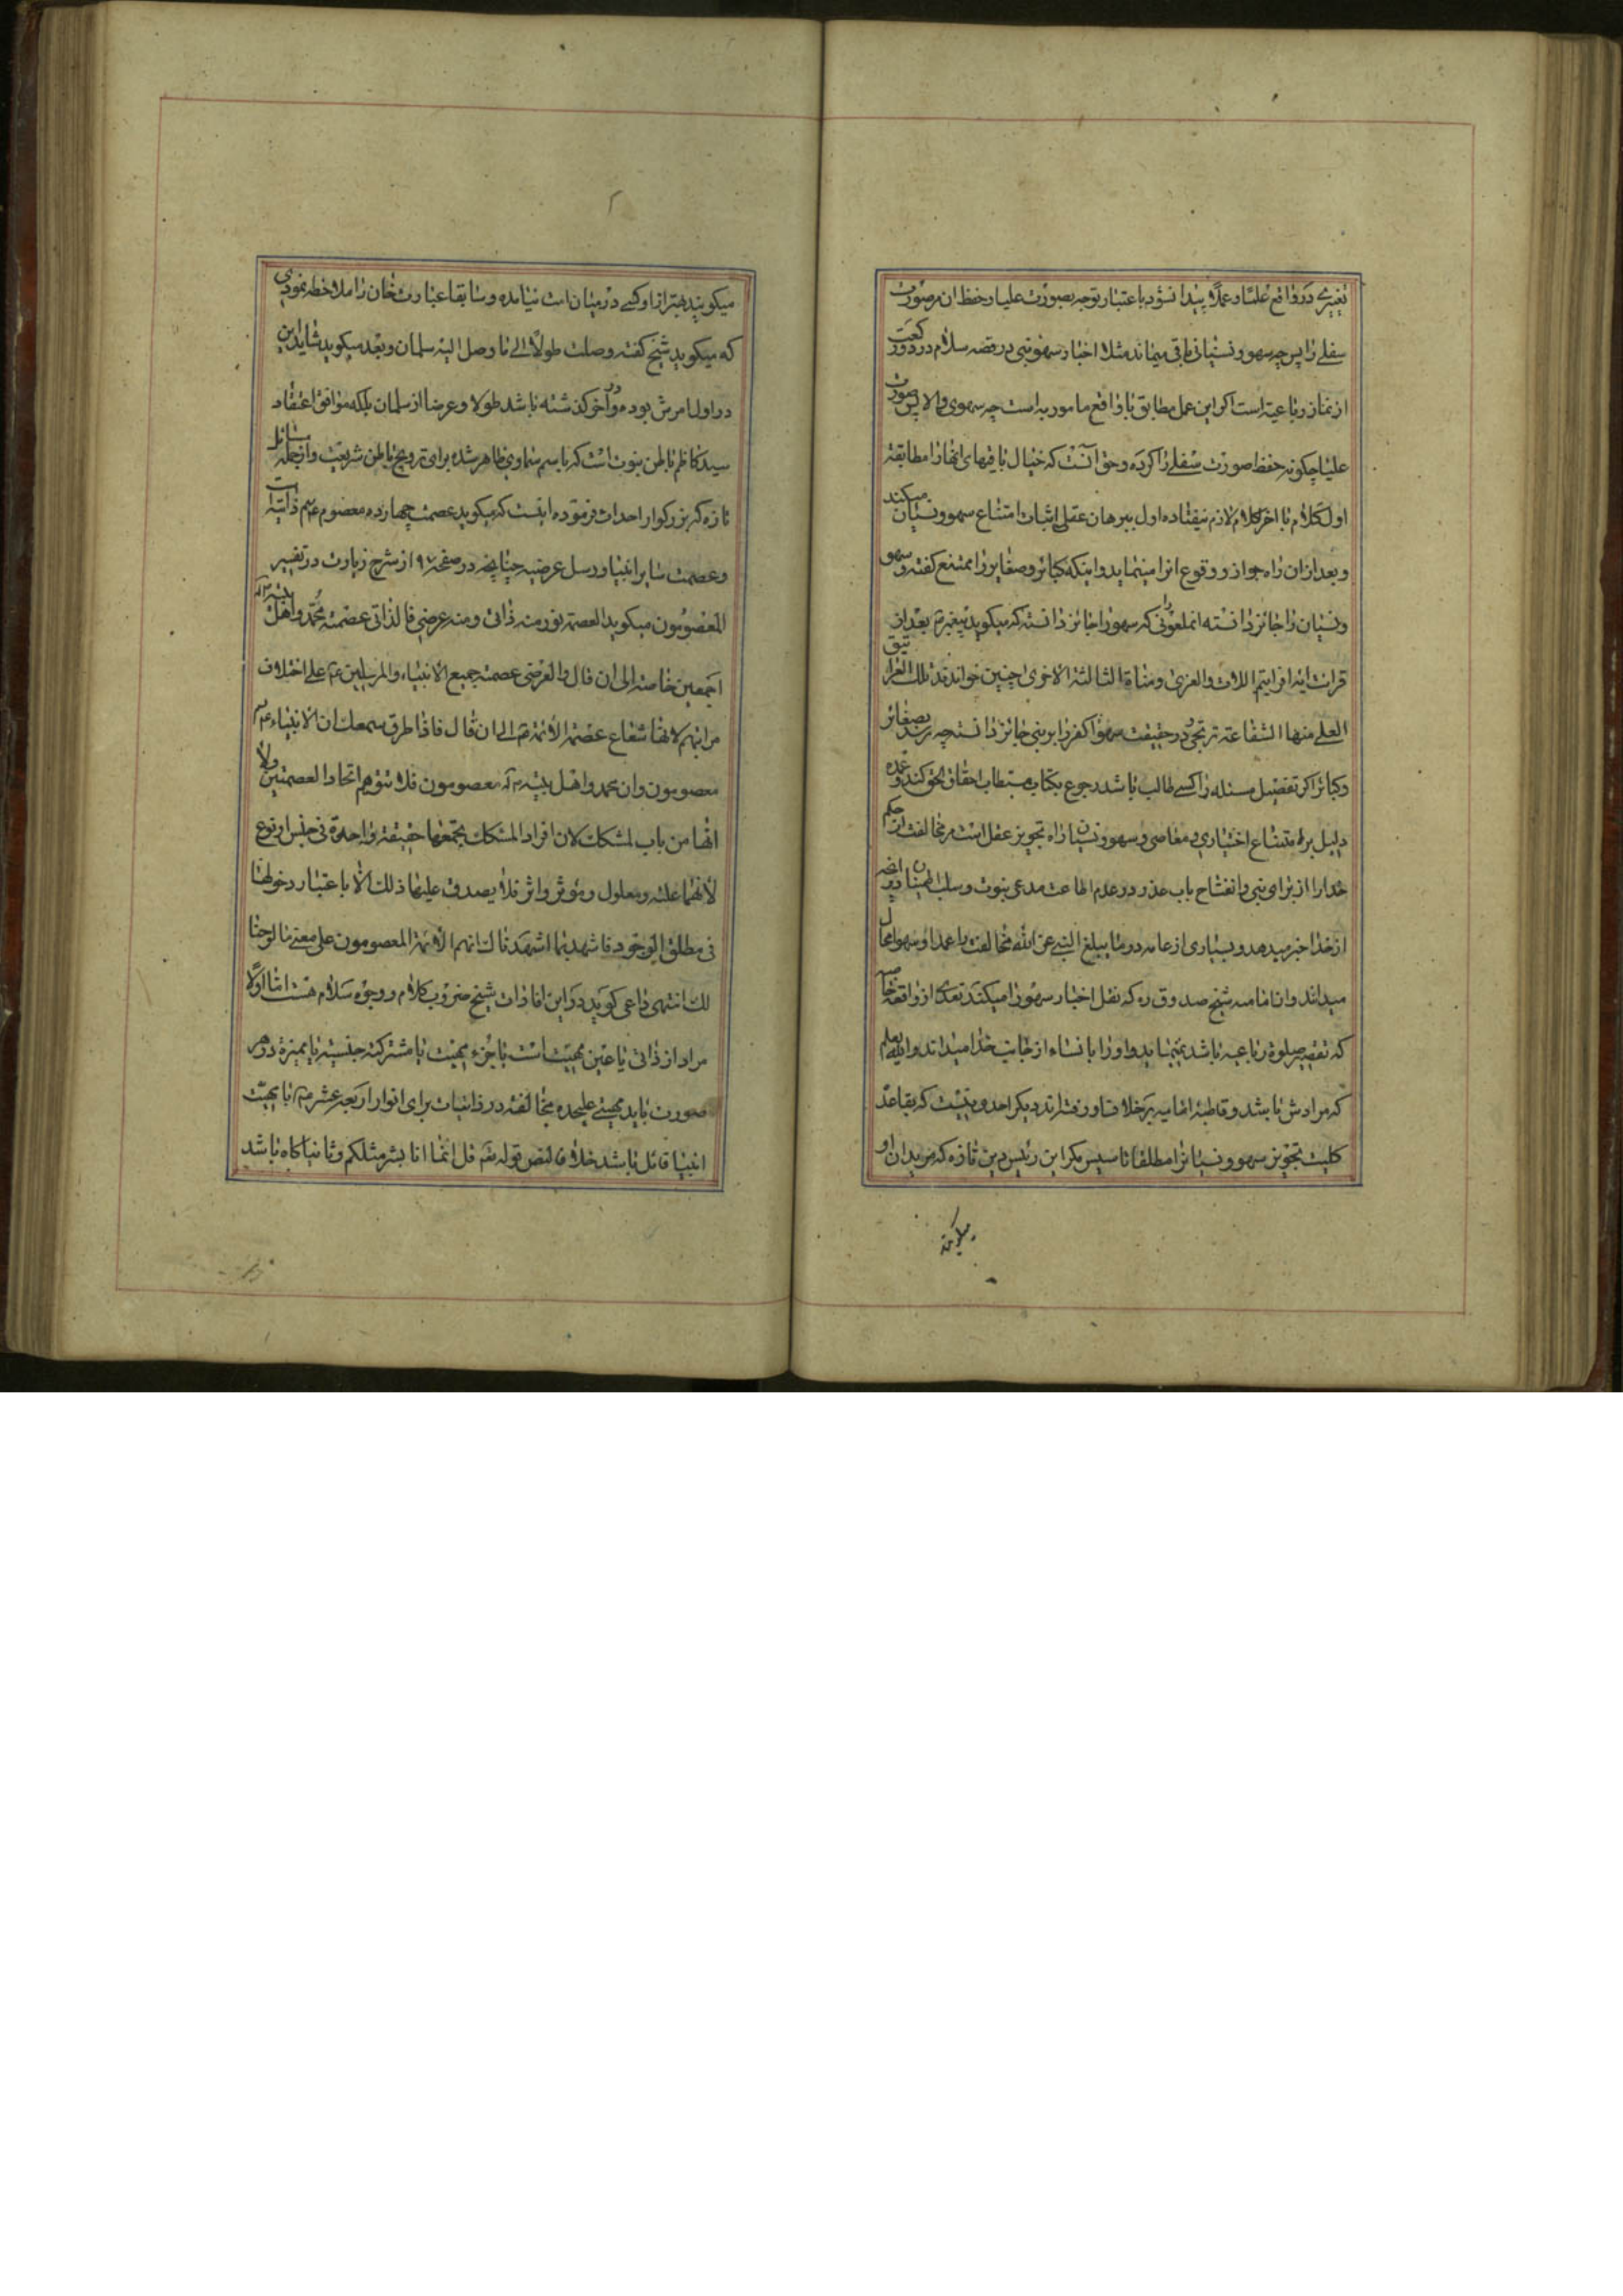 تغییری در واقع علما و عملا پیدا نشود باعتبار توجه بصورت علیا و حفظ ان مر صورت
سفلی را پس چه سهو و نسیانی باقی میماند مثلا اخبار سهو نبی در قصه سلام در دو رکعت
از نماز رباعیة است اگر این عمل مطابق با واقع مامور به است چه سهوی والا پس صورت
علیا چگونه حفظ صورت سفلی را کرده و حق آنست که خیال بافیهای انها را مطابقة
اول کلام با اخر کلام لازم نیفتاده اول ببرهان عقلی اثبات امتناع سهو و نسیان میکند
و بعد از ان راه جواز و وقوع انرا مینماید و اینکه کبائر و صغایر را ممتنع گفته و سهو
و نسیان را جائز دانسته انملعونی را که سهو را جائز دانسته که میگوید پیغمبر بعد از
قرائت ایه افرایتم اللات والعزی ومناة الثالثة الاخری چنین خواند تلک الغرانیق
العلی منها الشفاعة ترتجی و در حقیقت سهوا کفر را بر نبی جائز دانسته چه رسد بصغائر
و کبائر اکر تفصیل مسئله را کسی طالب باشد رجوع بکتاب مستطاب احقاق الحق کند و عمده
دلیل بر امتناع اختیاری معاصی و سهو و نسیان راه تجویز عقل است مر مخالفت از حکم
خدا را از برای نبی و انفتاح باب عذر در عدم اطاعت مدعی نبوت و سلب اطمینان در آنچه
از خدا خبر میدهد و بسیاری از عامه در ما یبلغ النبی عن الله مخالفت را عمدا و سهوا محال
میدانند و از امامیه شیخ صدوق ره که نقل اخبار سهو را میکند تعدی از واقعه خاصه
که قضیه صلوة رباعیه باشد نمینماید و او را بانساء از جانب خدا میداند والله یعلم
که مرادش باشد و قاطبه امامیه بر خلاف او رفته‌اند دیگر احدی نیست که بقاعده
کلیت تجویز سهو و نسیانرا مطلقا تاسیس مگر این رئیس دین تازه که مریدان او
میگویند
میگویند بهتر از او کسی در میان امت نیامده و سابقا عبارت خان را ملاحظه نمودی
که میگوید شیخ گفته وصلت طولا الی ما وصل الیه سلمان و بعد میگوید شاید این
در اول امرش بوده و در آخر گذشته باشد طولا و عرضا از سلمان بلکه موافق اعتقاد
سید کاظم باطن نبوت است که باسم سماوی ظاهر شده برای ترویج باطن شریعت و از جمله مسائل
تازه که بزرگوار احداث فرموده اینست که میگوید عصمت چهارده معصوم ع ذاتیة است
و عصمت سایر انبیا و رسل عرضیه چنانچه در صفحه ۹۷ از شرح زیارت در تفسیر
المعصومون میگوید العصمة نور منه ذاتی ومنه عرضی فالذاتی عصمة محمد واهل بیته
اجمعین خاصة الی ان قال والعرضی عصمة جمیع الانبیاء والمرسلین ع علی اختلاف
مراتبهم لانها شعاع عصمة الائمة ع الی ان قال فاذا طرق سمعک ان الانبیاء ع
معصومون وان محمد واهل بیته معصومون فلا تتوهم اتحاد العصمتین ولا
انها من باب المشکک لان افراد المشکک یجمعها حقیقة واحدة فی جنس او نوع
لانهما علة ومعلول وموثر واثر فلا یصدق علیهما ذلک الا باعتبار دخولهما
فی مطلق الوجود فاشهد بما اشهدناک انهم الائمة المعصومون علی معنی ما لوحنا
لک انتهی داعی گوید در این افادات شیخ ضروب کلام و وجوه سلام هست اما اولا
مراد از ذاتی یا عین مهیت است یا جزء مهیت یا مشترکه جنسیة یا ممیزة و در هر
صورت باید مهیتی علیحده مخالفه در ذاتیات برای انوار اربعة عشر ع با مهیت
انبیا قائل باشد خلافا لنص قوله تعم قل انما انا بشر مثلکم و ثانیا گاه باشد